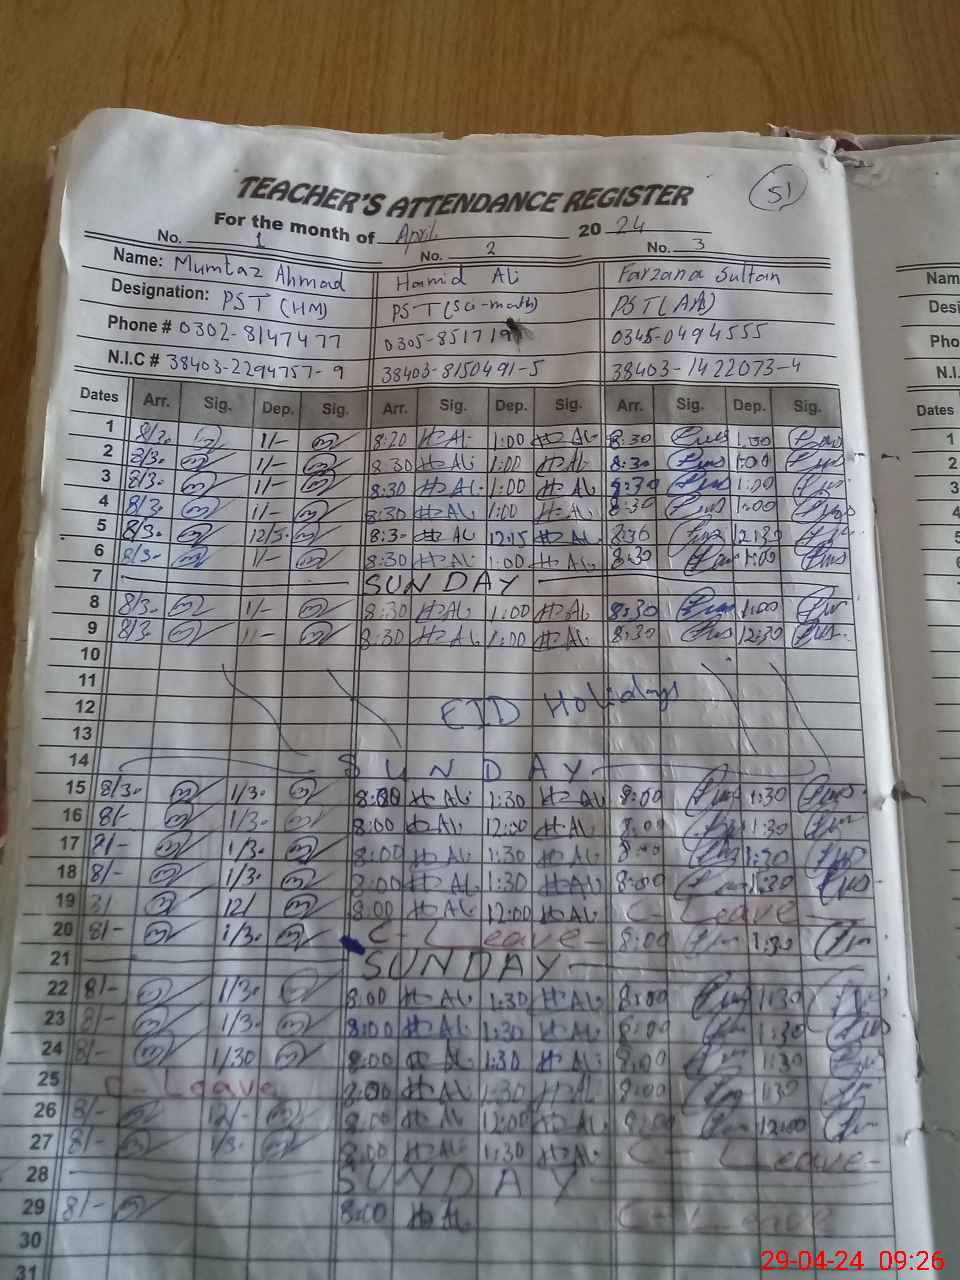 TEACHER'S ATTENDANCE REGISTER 51
For the month of April 2024
No. 1 No. 2 No. 3
Name: Mumtaz Ahmad Hamid Ali Farzana Sultan Nam
Designation: PST (HM) PST (Sci-math) PST (AA) Desi
Phone # 0302-8147477 0305-851719 0345-0494555 Pho
N.I.C # 38403-2294757-9 38403-8150491-5 38403-1422073-4 N.I.
Dates Arr. Sig. Dep. Sig. Arr. Sig. Dep. Sig. Arr. Sig. Dep. Sig. Dates
1 8/30 1/- 8:20 H Ali 1:00 H Ali 8:30 1:00 1
2 8/30 1/- 8:30 H Ali 1:00 H Ali 8:30 1:00 2
3 8/30 1/- 8:30 H Ali 1:00 H Ali 8:30 1:00 3
4 8/30 1/- 8:30 H Ali 1:00 H Ali 8:30 1:00 4
5 8/30 8:30 H Ali 12:15 H Ali 8:30 12:30 5
6 8/30 1/- 8:30 H Ali 1:00 H Ali 8:30 1:00 6
7 SUNDAY
8 8/30 1/- 8:30 H Ali 1:00 H Ali 8:30 1:00 8
9 8/30 8:30 H Ali 1:00 H Ali 8:30 12:30 9
10 10
11 11
12 EID Holidays 12
13 13
14 SUNDAY 14
15 8/30 1/30 8:00 H Ali 1:30 H Ali 8:00 1:30 15
16 8/- 1/30 8:00 H Ali 12:00 H Ali 8:00 1:30 16
17 1/30 8:00 H Ali 1:30 H Ali 8:00 1:30 17
18 8/- 1/30 8:00 H Ali 1:30 H Ali 8:00 1:30 18
19 12/ 8:00 H Ali 12:00 H Ali C-Leave 19
20 8/- 1/30 C-Leave 8:00 1:30 20
21 SUNDAY 21
22 8/- 1/30 8:00 H Ali 1:30 H Ali 8:00 1:30 22
23 8/- 1/30 8:00 H Ali 1:30 H Ali 8:00 1:30 23
24 8/- 1/30 8:00 H Ali 1:30 H Ali 8:00 1:30 24
25 C-Leave 8:00 H Ali 1:30 H Ali 8:00 1:30 25
26 8/- 12/- 8:00 H Ali 12:00 H Ali 8:00 12:00 26
27 8/- 1/30 8:00 H Ali 1:30 H Ali C-Leave 27
28 SUNDAY 28
29 8/- 8:00 H Ali C-Leave 29
30 30
31
29-04-24 09:26